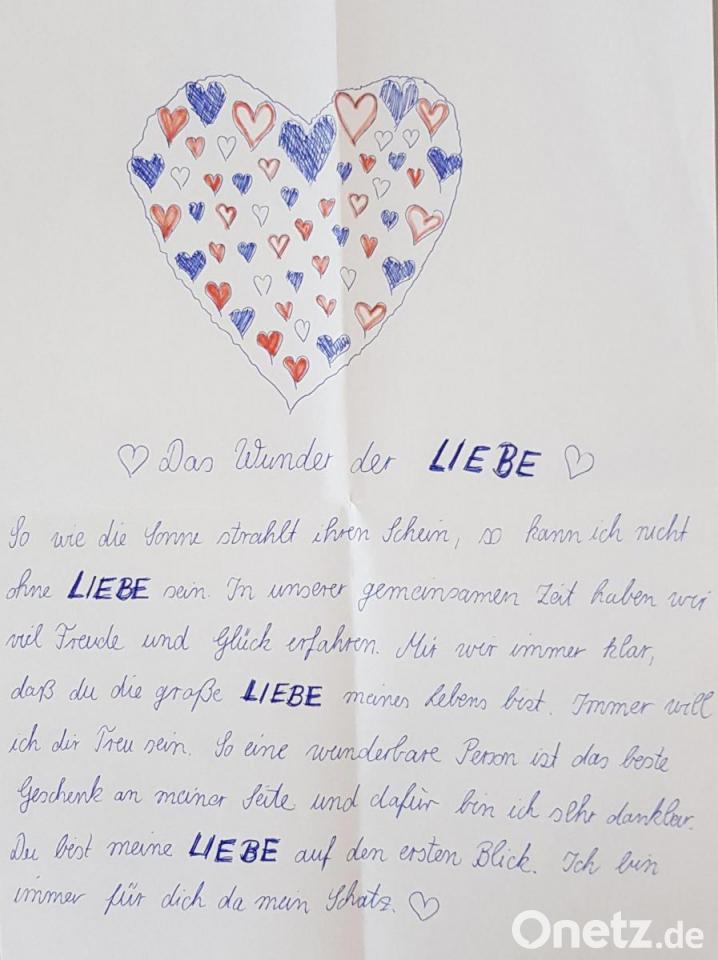 ♡ Das Wunder der LIEBE ♡
So wie die Sonne strahlt ihren Schein, so kann ich nicht
ohne LIEBE sein. In unserer gemeinsamen Zeit haben wir
viel Freude und Glück erfahren. Mir wir immer klar,
daß du die große LIEBE meines Lebens bist. Immer will
ich dir Treu sein. So eine wunderbare Person ist das beste
Geschenk an meiner Seite und dafür bin ich sehr dankbar.
Du bist meine LIEBE auf den ersten Blick. Ich bin
immer für dich da mein Schatz. ♡
Onetz.de